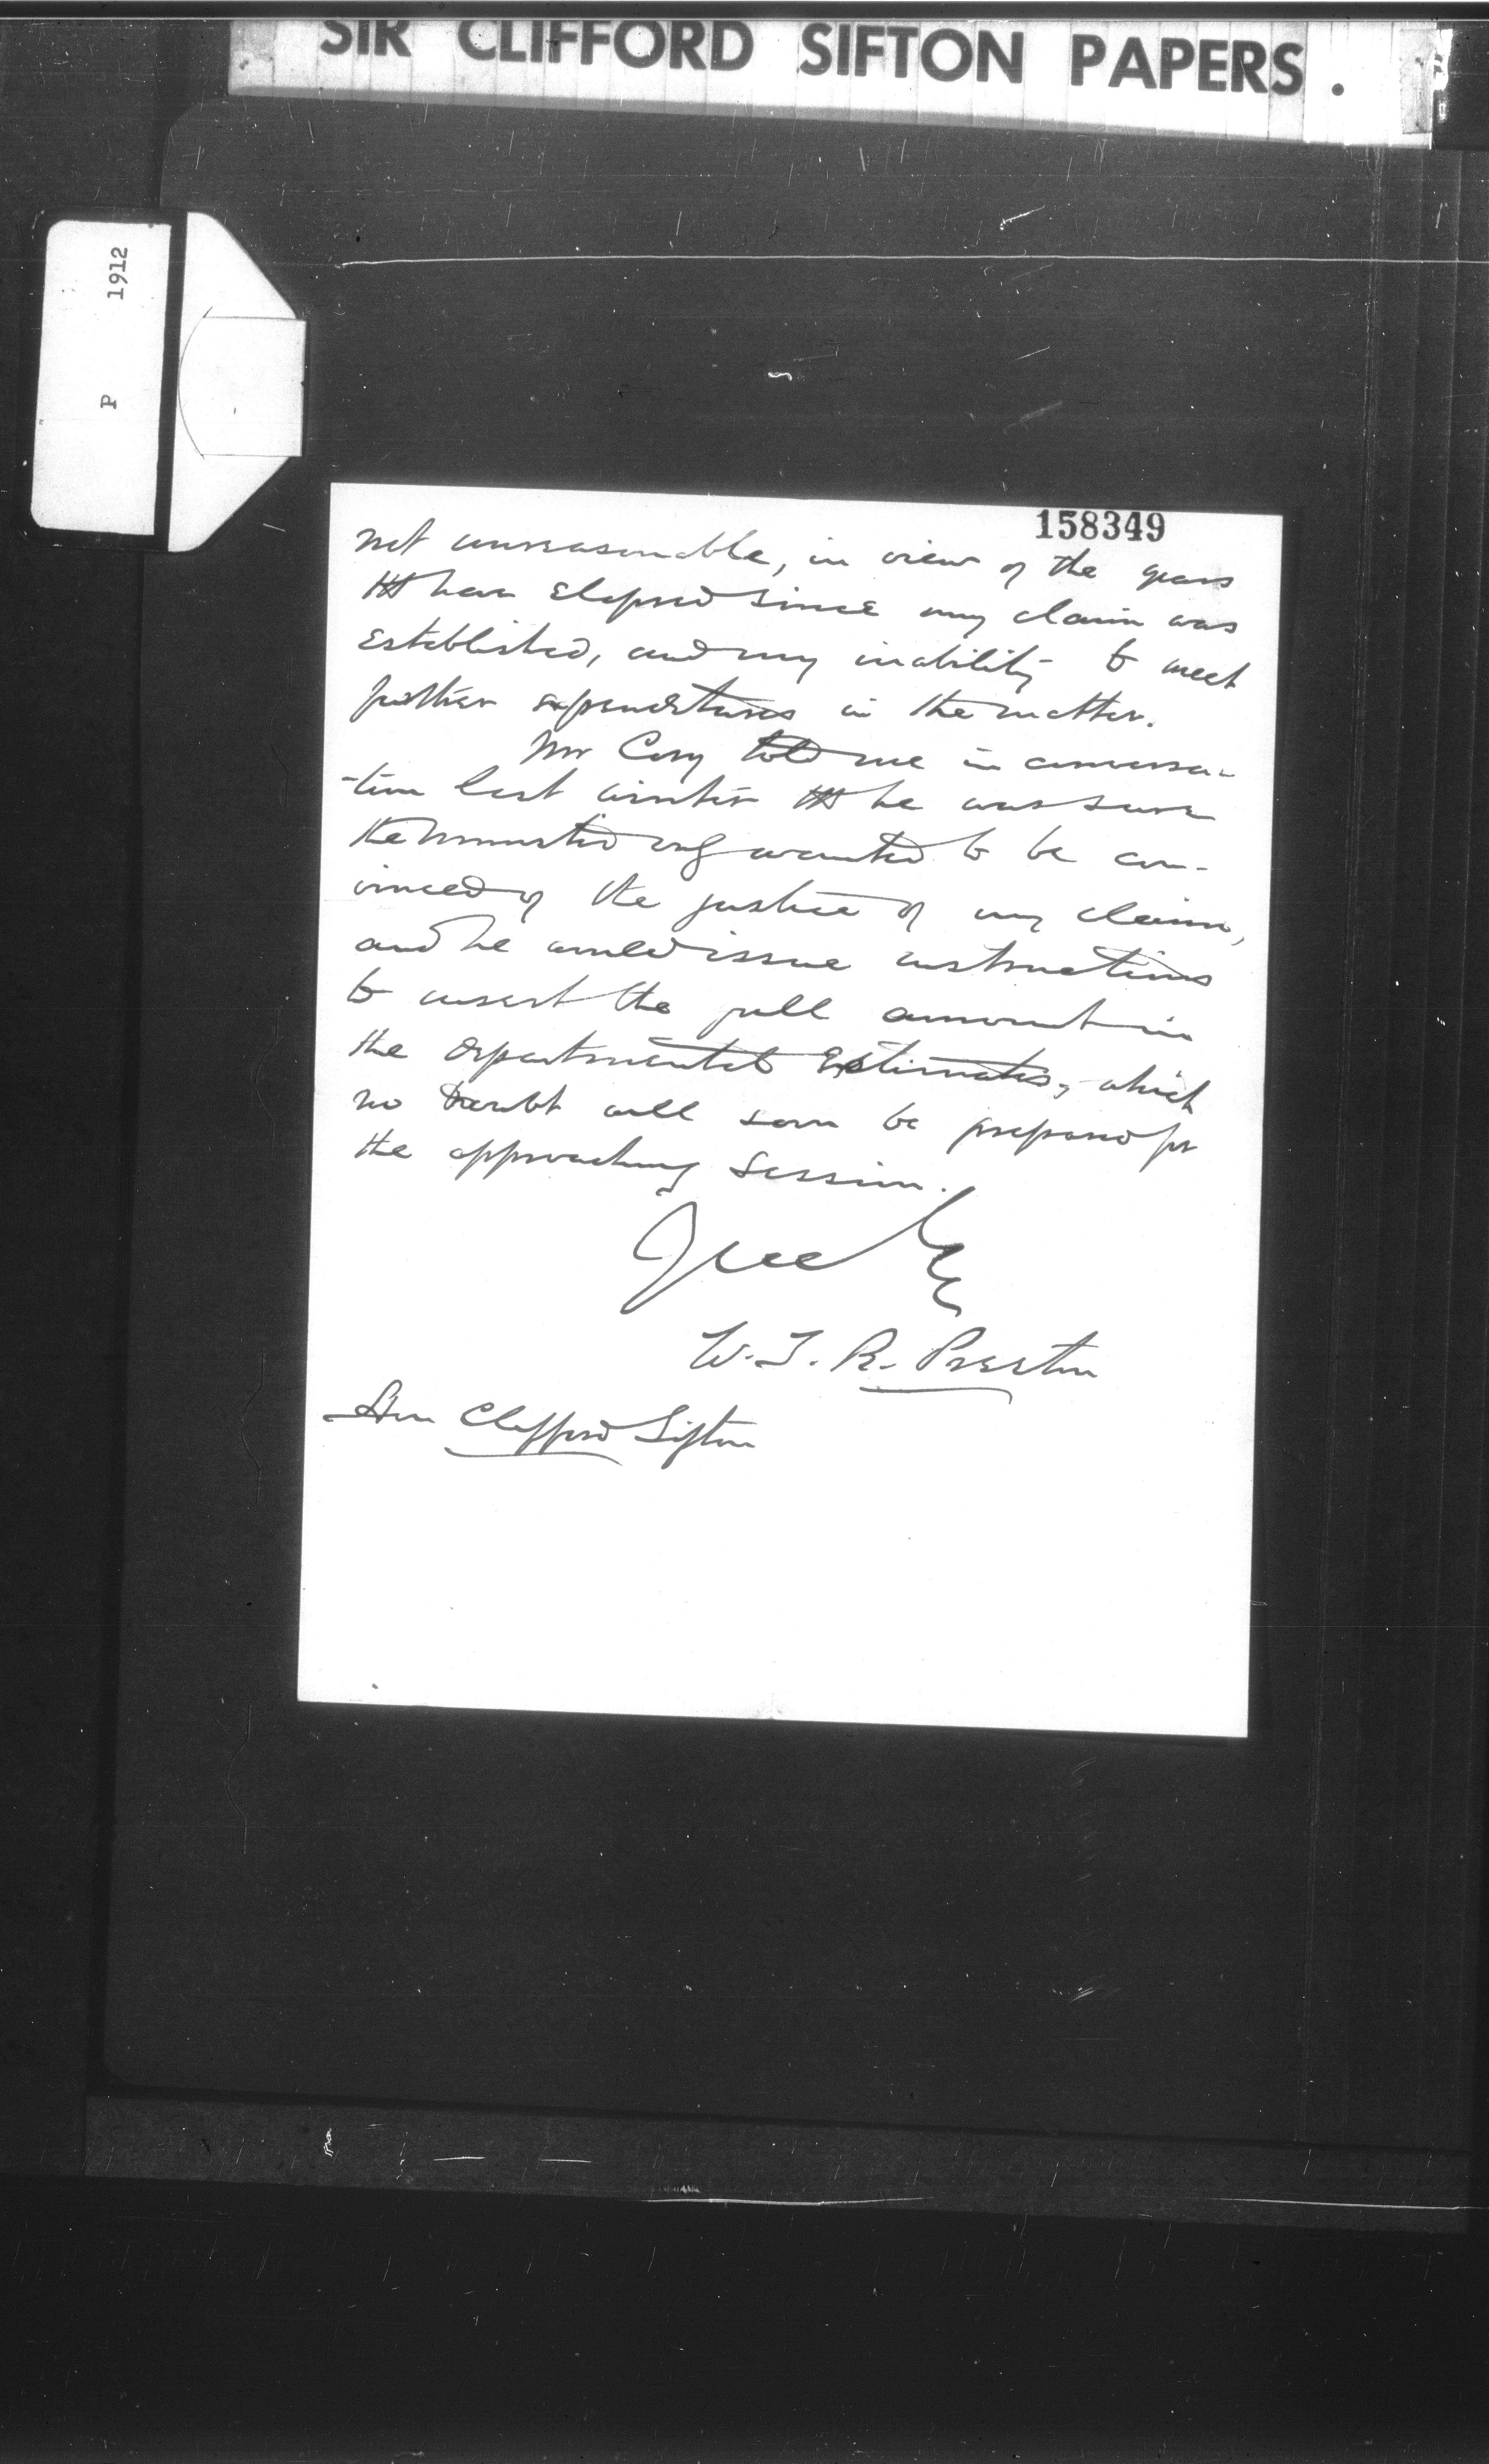 SIR CLIFFORD SIFTON PAPERS.
P 1912
158349
not unreasonable, in view of the years
tht have elapsed since my claim was
established, and my inability to meet
further expenditures in the matter.
Mr Cory told me in conversa-
-tion last winter tht he was sure
the Minister only wanted to be con-
vinced of the justice of my claim,
and he would issue instructions
to insert the full amount in
the departmental Estimates, which
no doubt will soon be prepared for
the approaching Session.
W. T. R. Preston
Hon Clifford Sifton